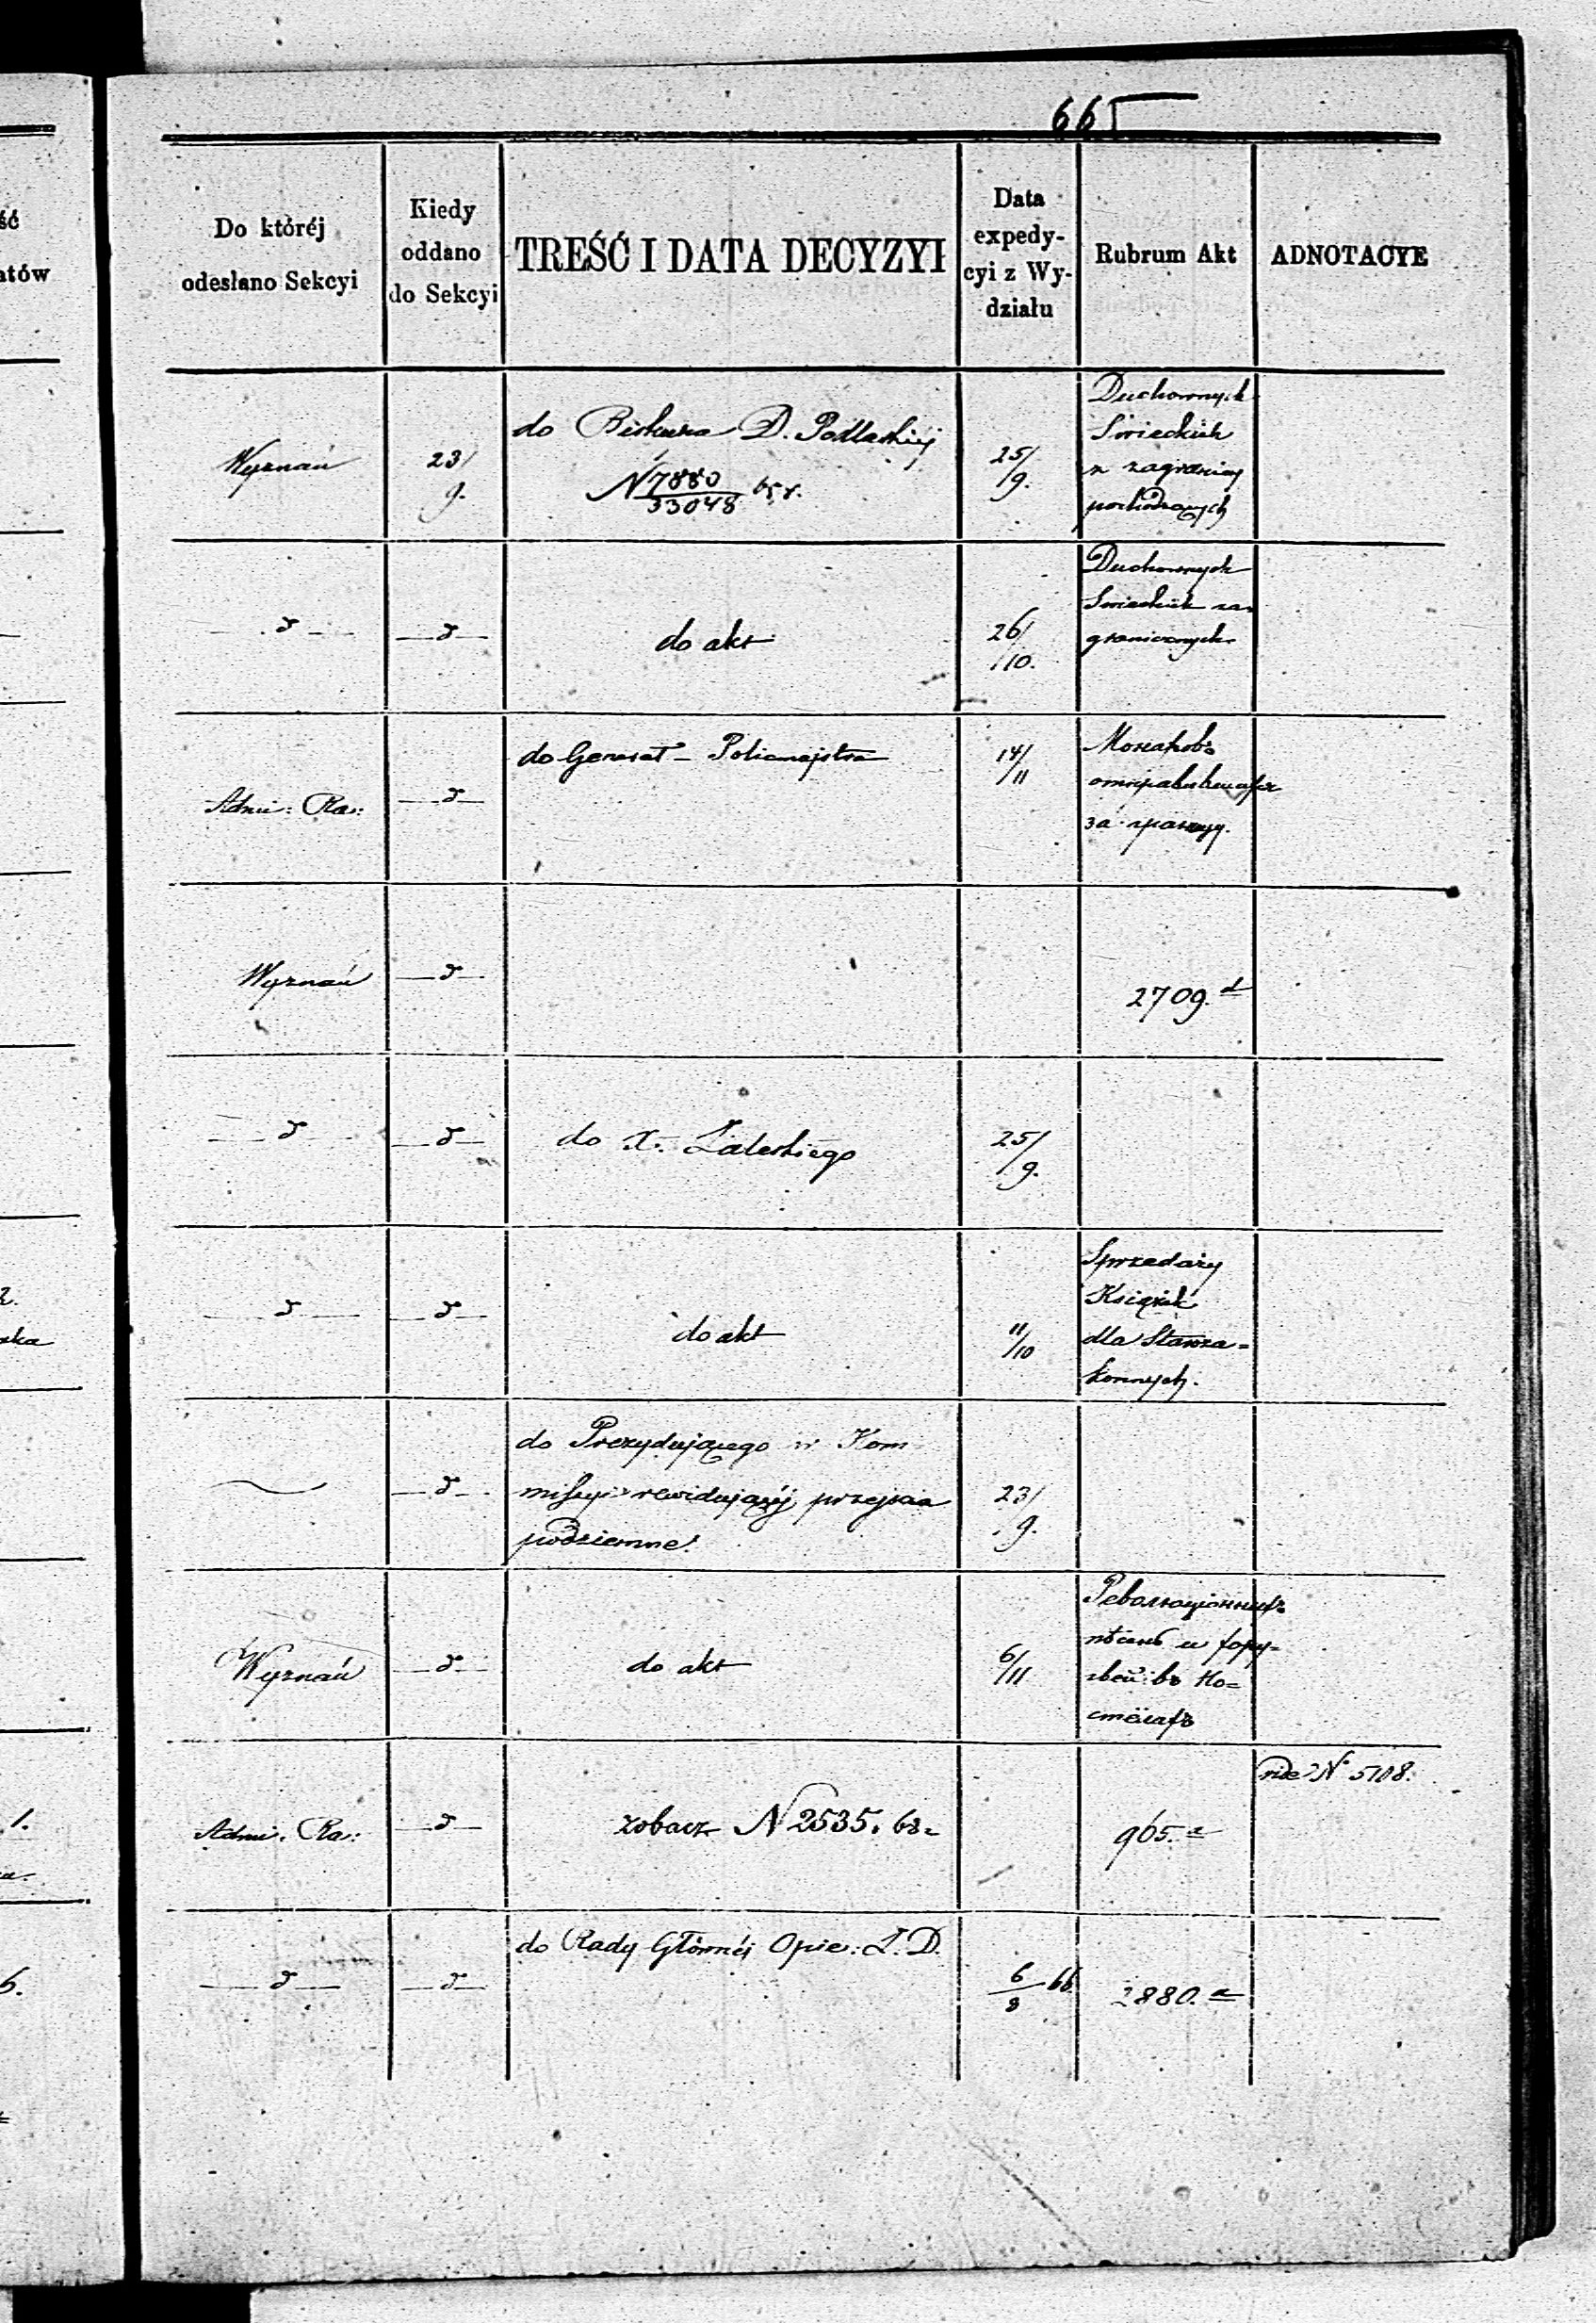 665
ść
atów
Do któréj
odesłano Sekcyi
Kiedy
oddano
do Sekcyi
TREŚĆ I DATA DECYZYI
Data
expedy-
cyi z Wy-
działu
Rubrum Akt
ADNOTACYE
Wyznań
23/9.
do Biskupa D. Podlaskiéj
N 7880/33048 65 r.
25/9.
Duchownych
Świeckich
z zagranicy
pochodzących
d
d
do akt
26/10.
Duchownych
Świeckich za-
granicznych
Admi: Ra:
d
do Generał - Policmajstra
14/11
Монаховъ
отправившихся
за границу.
Wyznań
d
2709.d
d
d
do X. Zaleskiego
25/9.
d
d
do akt
11/10
Sprzedaży
Książek
dla Staroza-
konnych.
d
do Prezydującego w Kom
missyi rewidującéj przejścia
podziemne.
23/9.
Wyznań
d
do akt
6/11
Революціонныхъ
пѣсень и хору-
гвей въ Ко-
стёлахъ
Admi. Ra:
d
zobacz N 2535. 63.
965.a
vide N° 5108.
d
d
do Rady Głównéj Opie: Z. D.
6/8 66
2880.a